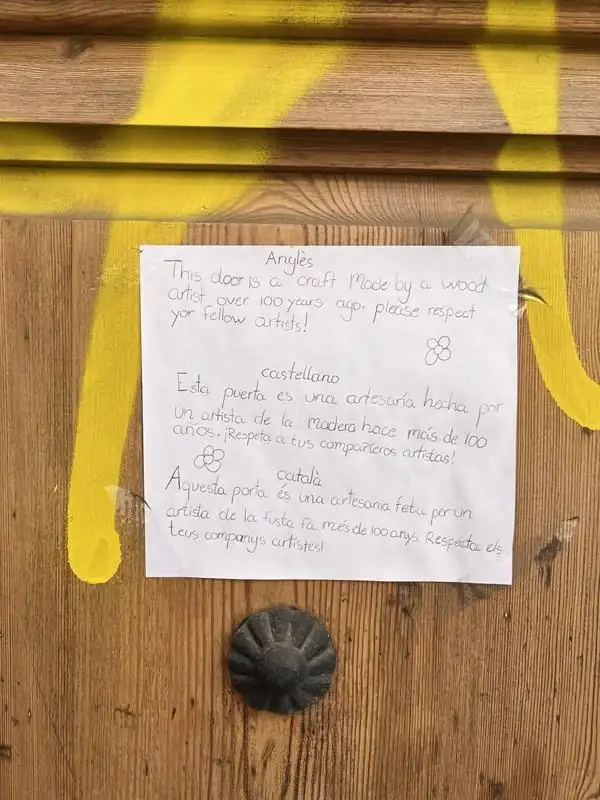 Anglès
This door is a craft Made by a wood
artist over 100 years ago. please respect
yor fellow artists!
castellano
Esta puerta es una artesaría hecha por
un artista de la madera hace más de 100
años. ¡Respeta a tus compañeros artistas!
català
Aquesta porta és una artesania feta per un
artista de la fusta fa més de 100 anys. Respecta els
teus companys artistes!